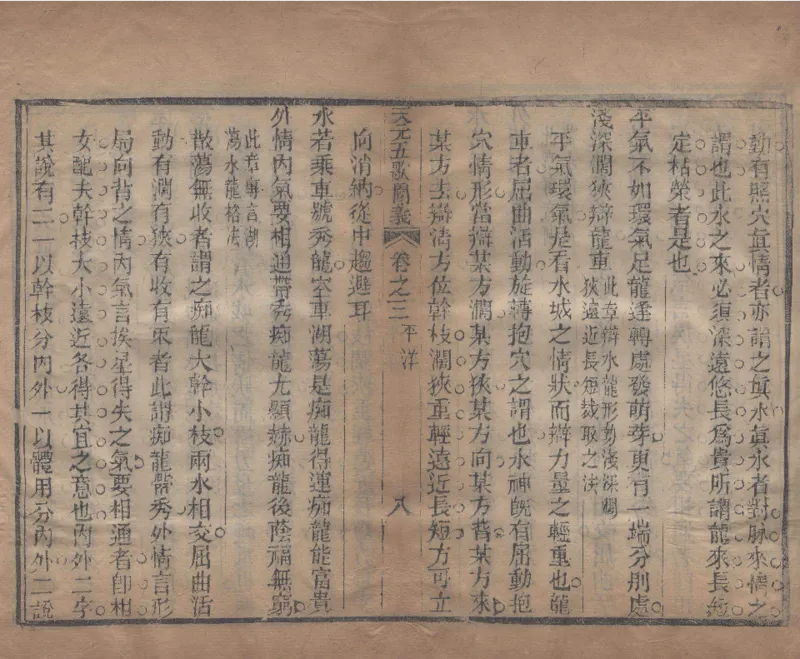 動有照穴眞情者亦謂之眞水眞水者對脉來情之
謂也此水之來必須深遠悠長爲貴所謂龍來長短
定枯榮者是也
平氣不如環氣足龍逢轉處發萌芽更有一端分別處
淺深濶狹辯龍車
此章辯水龍形勢淺深濶
狹遠近長短裁取之法
平氣環氣是看水城之情狀而辯力量之輕重也龍
車者屈曲活動旋轉抱穴之謂也水神旣有屈動抱
穴情形當辯某方濶某方狹某方向某方背某方來
某方去辯淸方位幹枝濶狹重輕遠近長短方可立
天元五歌闡義 卷之三 平洋 八
向消納從中趨避耳
水若乘車號秀龍空車湖蕩是痴龍得運痴龍能富貴
外情內氣要相通帶秀痴龍尤顯赫痴龍後蔭福無窮
此章專言湖
蕩水龍格法
散蕩無收者謂之痴龍大幹小枝兩水相交屈曲活
動有濶有狹有收有束者此謂痴龍帶秀外情言形
局向背之情內氣言挨星得失之氣要相通者卽相
女配夫幹枝大小遠近各得其宜之意也內外二字
其說有二一以幹枝分內外一以體用分內外二說